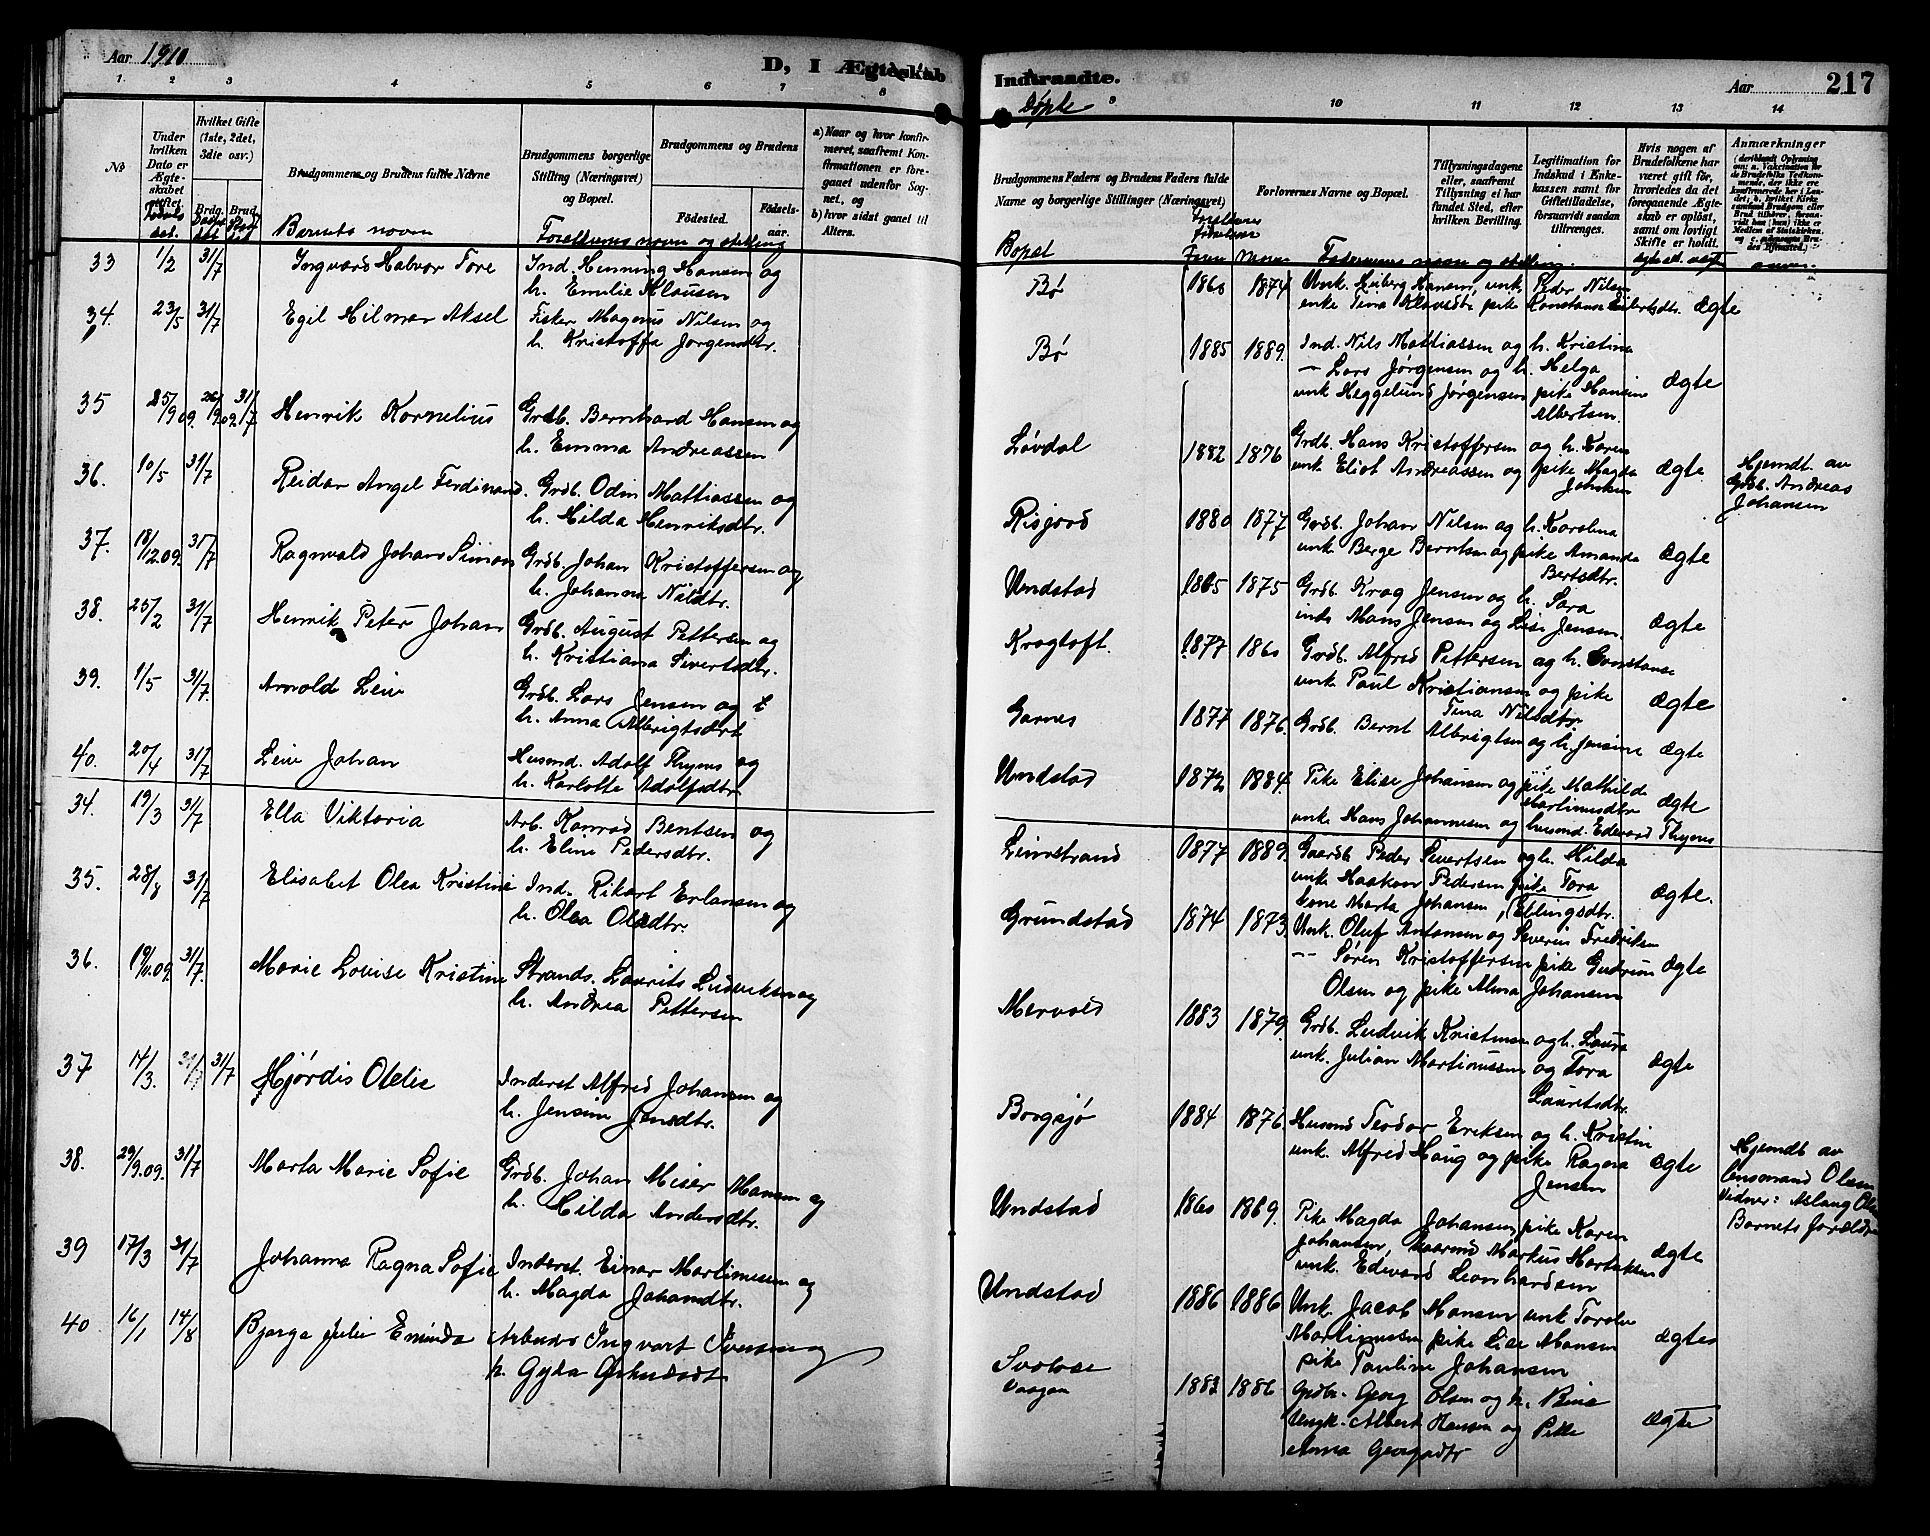 Aar 1910
D, I Ægteskab
Indtraadte.
Døpte
Aar
217
1 2 3 4 5 6 7 8
9 10 11 12 13 14
No
Under hvilken Dato er Ægteskabet stiftet
Hvilket Gifte (1ste, 2det, 3die osv.)
Brdg. Brud
Brudgommens og Brudens fulde Navne
Brudgommens borgerlige Stilling (Næringsvei) og Bopæl.
Brudgommens og Brudens
Födested.
Födsels-aar.
a) Naar og hvor konfirmeret, saafremt Konfirmationen er foregaaet udenfor Sognet, og
b) hvor sidst ganet til Alters.
Brudgommens Faders og Brudens Faders fulde Navne og borgerlige Stillinger (Næringsvei)
Forlovernes Navne og Bopæl.
Tillysningsdagene eller, saafremt Tillysning ei har fundet Sted, efter hvilken Bevilling.
Legitimation for Indskud i Enkekassen samt for Giftetilladelse, forsaavidt saadan tiltrænges.
Hvis nogen af Brudefolkene har været gift för, hvorledes da det foregaaende Ægteskab er oplöst, samt om lovligt Skifte er holdt.
Anmærkninger
Barnets navn
Forældrenes navn og stilling
Bopæl
Faddernes navn og stilling.
33 1/2 31/7 Ingvard Halvor Tore Ind. Henning Hansen og
h. Emilie Klausen
34. 23/5 31/7 Egil Hilmar Aksel Fisker Magnus Nilsen og
h. Kristoffa Jørgensdtr.
35 25/9 09. 26/9 09. 31/7 Henrik Kornelius Grdb. Bernhard Hansen og
h. Emma Andreassen
36. 10/5 31/7 Reidar Angel Ferdinand. Grdb. Odin Mattiassen og
h. Hilda Henriksdtr.
37. 18/12.09. 31/7 Ragnvald Johan Simon Grdb. Johan Kristoffersen og
h. Johanna Nilsdtr.
38. 25/2 31/7 Henrik Peter Johan Grdb. August Pettersen og
h. Kristiana Sivertsdtr.
39. 1/5 31/7 Arnold Leiv Grdb. Lars Jensen og
h. Anna Albrigtsdtr
40. 20/4 31/7 Leiv Johan Husmd. Adolf Thynes og
h. Karlotte Adolfsdtr.
34. 19/3 31/7 Ella Viktoria Arb. Konrad Bentsen og
h. Eline Pedersdtr.
35. 28/8 31/7 Elisabet Olea Kristine Ind. Rikart Erlansen og
h. Olea Olsdtr.
36. 19/11.09. 31/7. Marie Lovise Kristine Strands. Laurits Ludviksen og
h. Andrea Pettersen
37 14/3. 31/7 31/7 Hjørdis Otelie Inderst Alfred Johansen og
h. Jensine Jensdtr.
38. 29/9.09. 31/7 Marta Marie Sofie Grdb. Johan Miser Hansen og
h. Hilda Andersdtr.
39 17/3 31/7 Johanna Ragna Sofie Inderst. Einar Martinussen og
h. Magda Johansdtr.
40 16/1 14/8 Bjarga Julie Eminda Arbeider Ingvart Iversen og
h. Gyda
Bø 1860 1874 Unk. Hiberg Hansen, unk. Peder Nilsen
enke Tina Klausdtr pike Konstanse Eilertsdtr. ægte
Bø 1885 1889. Ind. Nils Mattiassen og h. Kristina
— Lars Jørgensen og h. Helga
unk Heggelund Jørgensen pike Hansine ægte
Albertsen.
Løvdal 1882 1876 Grdb. Hans Kristoffersen og h. Karen
unk Eliot Andreassen og pike Magda ægte. Hjemdt. av
Johansen Grdb. Andreas
Johansen
Risjord 1880 1877 Grdb. Johan Nilsen og h. Karolina
unk Berge Berntsen og pike Amanda ægte
Bertsdtr.
Undstad 1865 1875 Grdb. Krog Jensen og h. Sara
Hans Jensen og Lise Jensen. ægte
Kragtoft. 1877 1860 Grdb. Alfred Pettersen og h. Constanse
unk Paul Kristiansen og pike ægte
Tina Nilsdtr
Garnes 1877 1876. Grdb. Bernt Albrigtsen og h. Jensine ægte
Undstad 1872 1884. Pike Elise Johansen og pike Mathilde
Martinusdtr ægte
unk Hans Johannesen og husmd. Edevard Thynes
Leinstrand 1877 1889. Gaardb. Peder Sivertsen og h. Hilda
unk Haakon Pedersen pike Tora ægte.
kone Marta Johansen, (Ellingsdtr.
Grundstad 1874 1873. Unk. Oluf Antonsen og Severin Fredriksen
— Søren Kristoffersen pike Gudrun ægte
Olsen og pike Alma Johansen
Mervold 1883 1879. Grdb. Ludvik Kristensen og h. Laura
unk. Julian Martinussen og Tora ægte
Lauretsdtr.
Borgsjø 1884 1876. Husmd Teodor Eriksen og h. Kristine
unk. Alfred Haug og pike Ragna ægte Hjemdt av
Jensen lensmand Olsen
Vidner: Aslaug
Barnets forældre
Undstad 1860 1869. Pike Magda Johansen, pike Karen
Johansen, Gaarmd Markus Hartviksen ægte
unk. Edevard Leonhardsen
Undstad 1886 1886 Unk. Jacob Hansen unk Torolv
Martinussen pike Lise Hansen ægte
pike Pauline Johansen
Svolvær
Vaagan 1883 1886 Grdbr. Georg Olsen og h. Bina
Ungk. Albert Hansen og Pike ægte
Anna Georgsdtr